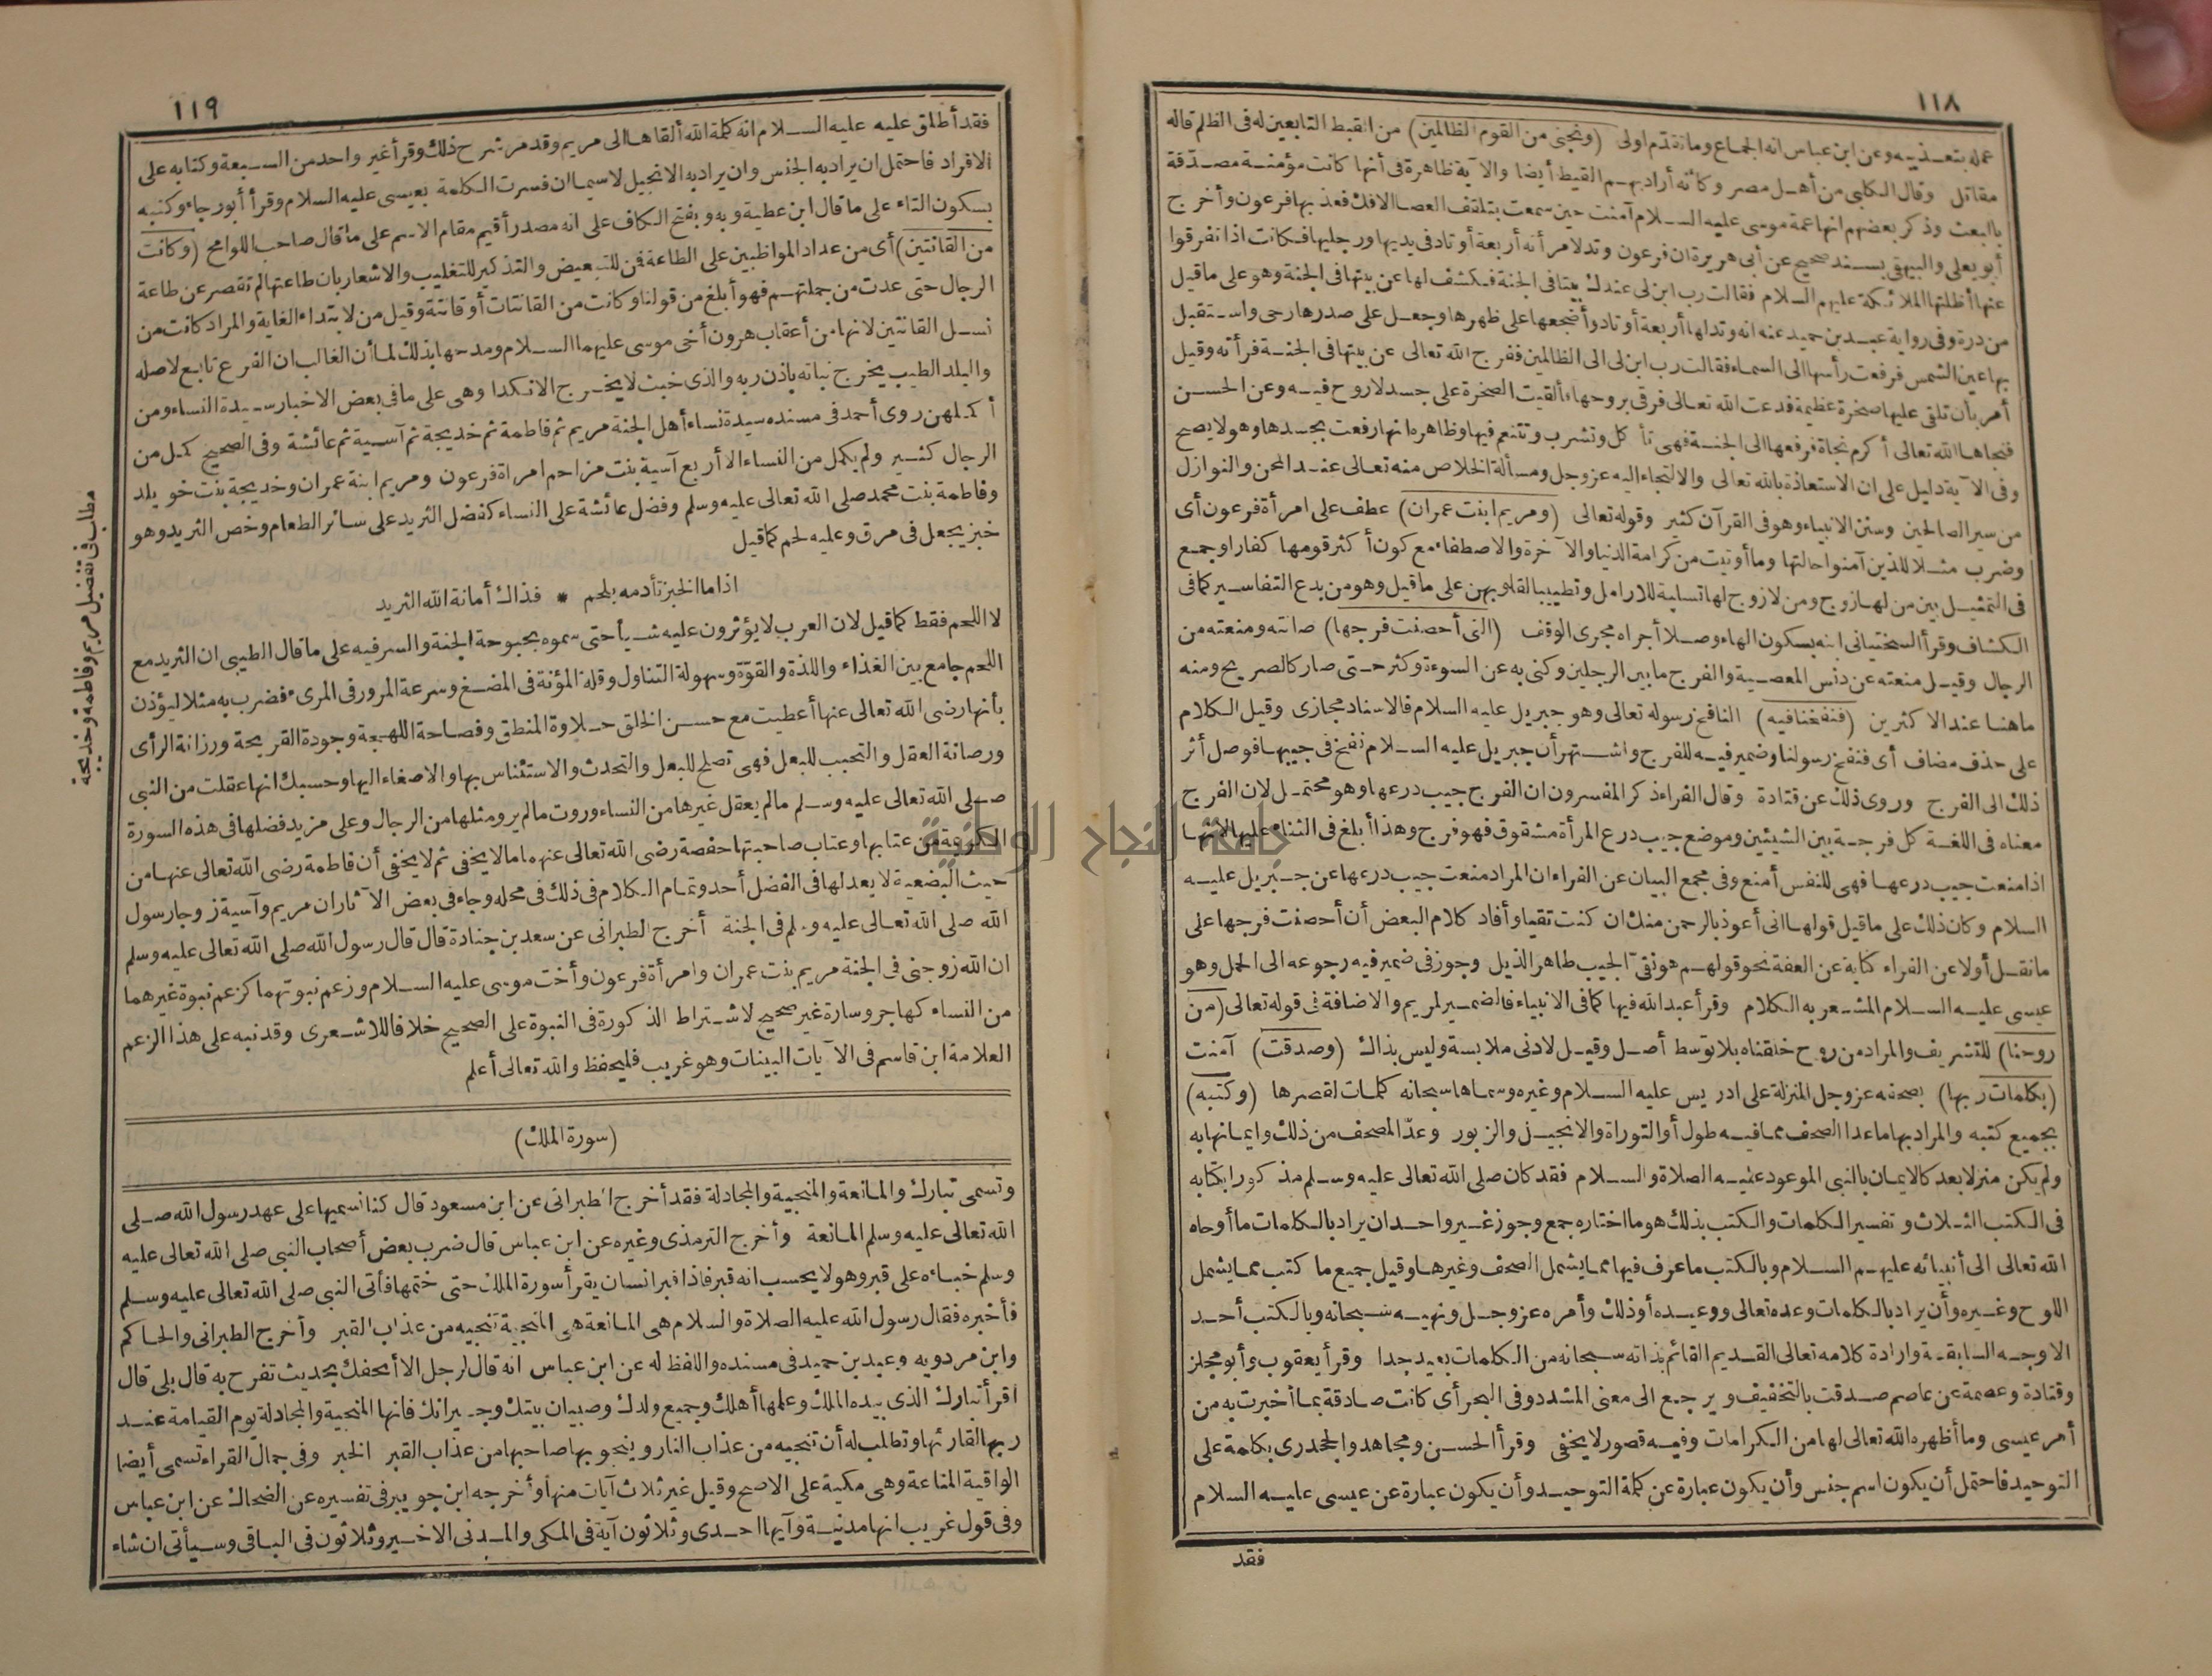 ١١٨
عمله بتعذيبه وعن ابن عباس انه الجماع وماتقدم اولى (ونجنى من القوم الظالمين) من القبط التابعين له فى الظلم قاله
مقاتل وقال الكلبى من أهل مصر وكأنه أراد بهم القبط أيضا والآية ظاهرة فى أنها كانت مؤمنة مصدقة
بالبعث وذكر بعضهم انها عمة موسى عليه السلام آمنت حين سمعت بتلقف العصا الافك فعذبها فرعون وأخرج
أبو يعلى والبيهقى بسند صحيح عن أبى هريرة ان فرعون وتد لامرأته أربعة أوتاد فى يديها ورجليها فكانت اذا تفرقوا
عنها أظلتها الملائكة عليهم السلام فقالت رب ابن لى عندك بيتا فى الجنة فكشف لها عن بيتها فى الجنة وهو على ماقيل
من درة وفى رواية عبد بن حميد عنه انه وتد لها أربعة أوتاد وأضجعها على ظهرها وجعل على صدرها رحى واستقبل
بها عين الشمس فرفعت رأسها الى السماء فقالت رب ابن لى الى الظالمين ففرج الله تعالى عن بيتها فى الجنة فرأته وقيل
أمر بأن تلقى عليها صخرة عظيمة فدعت الله تعالى فرقى بروحها فألقيت الصخرة على جسد لا روح فيه وعن الحسن
فنجاها الله تعالى أكرم نجاة فرفعها الى الجنة فهى تأكل وتشرب وتتنعم فيها وظاهره انها رفعت بجسدها وهو لا يصح
وفى الآية دليل على ان الاستعاذة بالله تعالى والالتجاء اليه عز وجل ومسألة الخلاص منه تعالى عند المحن والنوازل
من سير الصالحين وسنن الانبياء وهو فى القرآن كثير وقوله تعالى (ومريم ابنت عمران) عطف على امرأة فرعون أى
وضرب مثلا للذين آمنوا حالتها وما أوتيت من كرامة الدنيا والآخرة والاصطفاء مع كون أكثر قومها كفارا وجمع
فى التمثيل بين من لها زوج ومن لا زوج لها تسلية للارامل وتطييبا لقلوبهن على ماقيل وهو من بدع التفاسير كما فى
الكشاف وقرأ السختيانى ابنه بسكون الهاء وصلا أجراه مجرى الوقف (التى أحصنت فرجها) صانته ومنعته من
الرجال وقيل منعته عن دنس المعصية والفرج مابين الرجلين وكنى به عن السوءة وكثر حتى صار كالصريح ومنه
ماهنا عند الاكثرين (فنفخنا فيه) النافخ رسوله تعالى وهو جبريل عليه السلام فالاسناد مجازى وقيل الكلام
على حذف مضاف أى فنفخ رسولنا وضمير فيه للفرج واشتهر أن جبريل عليه السلام نفخ فى جيبها فوصل أثر
ذلك الى الفرج وروى ذلك عن قتادة وقال الفراء ذكر المفسرون ان الفرج جيب درعها وهو محتمل لان الفرج
معناه فى اللغة كل فرجة بين الشيئين وموضع جيب درع المرأة مشقوق فهو فرج وهذا أبلغ فى الثناء عليها لانها
اذا منعت جيب درعها فهى للنفس أمنع وفى مجمع البيان عن الفراء ان المراد منعت جيب درعها عن جبريل عليه
السلام وكان ذلك على ماقيل قولها انى أعوذ بالرحمن منك ان كنت تقيا وأفاد كلام البعض أن أحصنت فرجها على
مانقل أولا عن الفراء كناية عن العفة نحو قولهم هو نقى الجيب طاهر الذيل وجوز فى ضمير فيه رجوعه الى الحمل وهو
عيسى عليه السلام المشعر به الكلام وقرأ عبد الله فيها كما فى الانبياء فالضمير لمريم والاضافة فى قوله تعالى (من
روحنا) للتشريف والمراد من روح خلقناه بلا توسط أصل وقيل لادنى ملابسة وليس بذاك (وصدقت) آمنت
(بكلمات ربها) بصحفه عز وجل المنزلة على ادريس عليه السلام وغيره وسماها سبحانه كلمات لقصرها (وكتبه)
بجميع كتبه والمراد بها ماعدا الصحف مما فيه طول أو التوراة والانجيل والزبور وعدّ المصحف من ذلك وايمانها به
ولم يكن منزلا بعد كالايمان بالنبى الموعود عليه الصلاة والسلام فقد كان صلى الله تعالى عليه وسلم مذكورا بكتابه
فى الكتب الثلاث وتفسير الكلمات والكتب بذلك هو ما اختاره جمع وجوز غير واحد ان يراد بالكلمات ما أوحاه
الله تعالى الى أنبيائه عليهم السلام وبالكتب ماعرف فيها مما يشمل الصحف وغيرها وقيل جميع ما كتب مما يشمل
اللوح وغيره وأن يراد بالكلمات وعده تعالى ووعيده أو ذلك وأمره عز وجل ونهيه سبحانه وبالكتب أحد
الاوجه السابقة وارادة كلامه تعالى القديم القائم بذاته سبحانه من الكلمات بعيد جدا وقرأ يعقوب وأبو مجلز
وقتادة وعصمة عن عاصم صدقت بالتخفيف ويرجع الى معنى المشدد وفى البحر أى كانت صادقة بما أخبرت به من
أمر عيسى وما أظهره الله تعالى لها من الكرامات وفيه قصور لا يخفى وقرأ الحسن ومجاهد والجحدرى بكلمة على
التوحيد فاحتمل أن يكون اسم جنس وأن يكون عبارة عن كلمة التوحيد وأن يكون عبارة عن عيسى عليه السلام
فقد
١١٩
فقد أطلق عليه عليه السلام انه كلمة الله ألقاها الى مريم وقد مر شرح ذلك وقرأ غير واحد من السبعة وكتابه على
الافراد فاحتمل ان يراد به الجنس وان يراد به الانجيل لاسيما ان فسرت الكلمة بعيسى عليه السلام وقرأ أبو رجاء وكتبه
بسكون التاء على ماقال ابن عطية وبه وبفتح الكاف على انه مصدر أقيم مقام الاسم على ماقال صاحب اللوامح (وكانت
من القانتين) أى من عداد المواظبين على الطاعة فمن للتبعيض والتذكير للتغليب والاشعار بان طاعتها لم تقصر عن طاعة
الرجال حتى عدت من جملتهم فهو أبلغ من قولنا وكانت من القانتات أو قانتة وقيل من لابتداء الغاية والمراد كانت من
نسل القانتين لانها من أعقاب هرون أخى موسى عليهما السلام ومدحها بذلك لما أن الغالب ان الفرع تابع لاصله
والبلد الطيب يخرج نباته باذن ربه والذى خبث لا يخرج الا نكدا وهى على مافى بعض الاخبار سيدة النساء ومن
أكملهن روى أحمد فى مسنده سيدة نساء أهل الجنة مريم ثم فاطمة ثم خديجة ثم آسية ثم عائشة وفى الصحيح كمل من
الرجال كثير ولم يكمل من النساء الا أربع آسية بنت مزاحم امرأة فرعون ومريم ابنة عمران وخديجة بنت خويلد
وفاطمة بنت محمد صلى الله تعالى عليه وسلم وفضل عائشة على النساء كفضل الثريد على سائر الطعام وخص الثريد وهو
خبز يجعل فى مرق وعليه لحم كما قيل
اذا ما الخبز تأدمه بلحم * فذاك أمانة الله الثريد
لا اللحم فقط كما قيل لان العرب لا يؤثرون عليه شيأ حتى سموه بحبوحة الجنة والسر فيه على ماقال الطيبى ان الثريد مع
اللحم جامع بين الغذاء واللذة والقوّة وسهولة التناول وقلة المؤنة فى المضغ وسرعة المرور فى المرىء فضرب به مثلا ليؤذن
بأنها رضى الله تعالى عنها أعطيت مع حسن الخلق حلاوة المنطق وفصاحة اللهجة وجودة القريحة ورزانة الرأى
ورصانة العقل والتحبب للبعل فهى تصلح للبعل والتحدث والاستئناس بها والاصغاء اليها وحسبك انها عقلت من النبى
صلى الله تعالى عليه وسلم مالم يعقل غيرها من النساء وروت مالم يرو مثلها من الرجال وعلى مزيد فضلها فى هذه السورة
الكريمة من عتابها وعتاب صاحبتها حفصة رضى الله تعالى عنهما مالا يخفى ثم لا يخفى أن فاطمة رضى الله تعالى عنها من
حيث البضعية لا يعدلها فى الفضل أحد وتمام الكلام فى ذلك فى محله وجاء فى بعض الآثار ان مريم وآسية زوجا رسول
الله صلى الله تعالى عليه وسلم فى الجنة أخرج الطبرانى عن سعد بن جنادة قال قال رسول الله صلى الله تعالى عليه وسلم
ان الله زوجنى فى الجنة مريم بنت عمران وامرأة فرعون وأخت موسى عليه السلام وزعم نبوتهما كزعم نبوة غيرهما
من النساء كهاجر وسارة غير صحيح لاشتراط الذكورة فى النبوة على الصحيح خلافا للاشعرى وقد نبه على هذا الزعم
العلامة ابن قاسم فى الآيات البينات وهو غريب فليحفظ والله تعالى أعلم
(سورة الملك)
وتسمى تبارك والمانعة والمنجية والمجادلة فقد أخرج الطبرانى عن ابن مسعود قال كنا نسميها على عهد رسول الله صلى
الله تعالى عليه وسلم المانعة وأخرج الترمذى وغيره عن ابن عباس قال ضرب بعض أصحاب النبى صلى الله تعالى عليه
وسلم خباءه على قبر وهو لا يحسب انه قبر فاذا قبر انسان يقرأ سورة الملك حتى ختمها فأتى النبى صلى الله تعالى عليه وسلم
فأخبره فقال رسول الله عليه الصلاة والسلام هى المانعة هى المنجية تنجيه من عذاب القبر وأخرج الطبرانى والحاكم
وابن مردويه وعبد بن حميد فى مسنده واللفظ له عن ابن عباس انه قال لرجل الا أتحفك بحديث تفرح به قال بلى قال
اقرأ تبارك الذى بيده الملك وعلمها أهلك وجميع ولدك وصبيان بيتك وجيرانك فانها المنجية والمجادلة يوم القيامة عند
ربها لقارئها وتطلب له أن تنجيه من عذاب النار وينجو بها صاحبها من عذاب القبر الخبر وفى جمال القراء تسمى أيضا
الواقية المناعة وهى مكية على الاصح وقيل غير ثلاث آيات منها وأخرجه ابن جويبر فى تفسيره عن الضحاك عن ابن عباس
وفى قول غريب انها مدنية وآيها احدى وثلاثون آية فى المكى والمدنى الاخير وثلاثون فى الباقى وسيأتى ان شاء
مطلب فى تفضيل مريم وفاطمة وخديجة
جامعة النجاح الوطنية